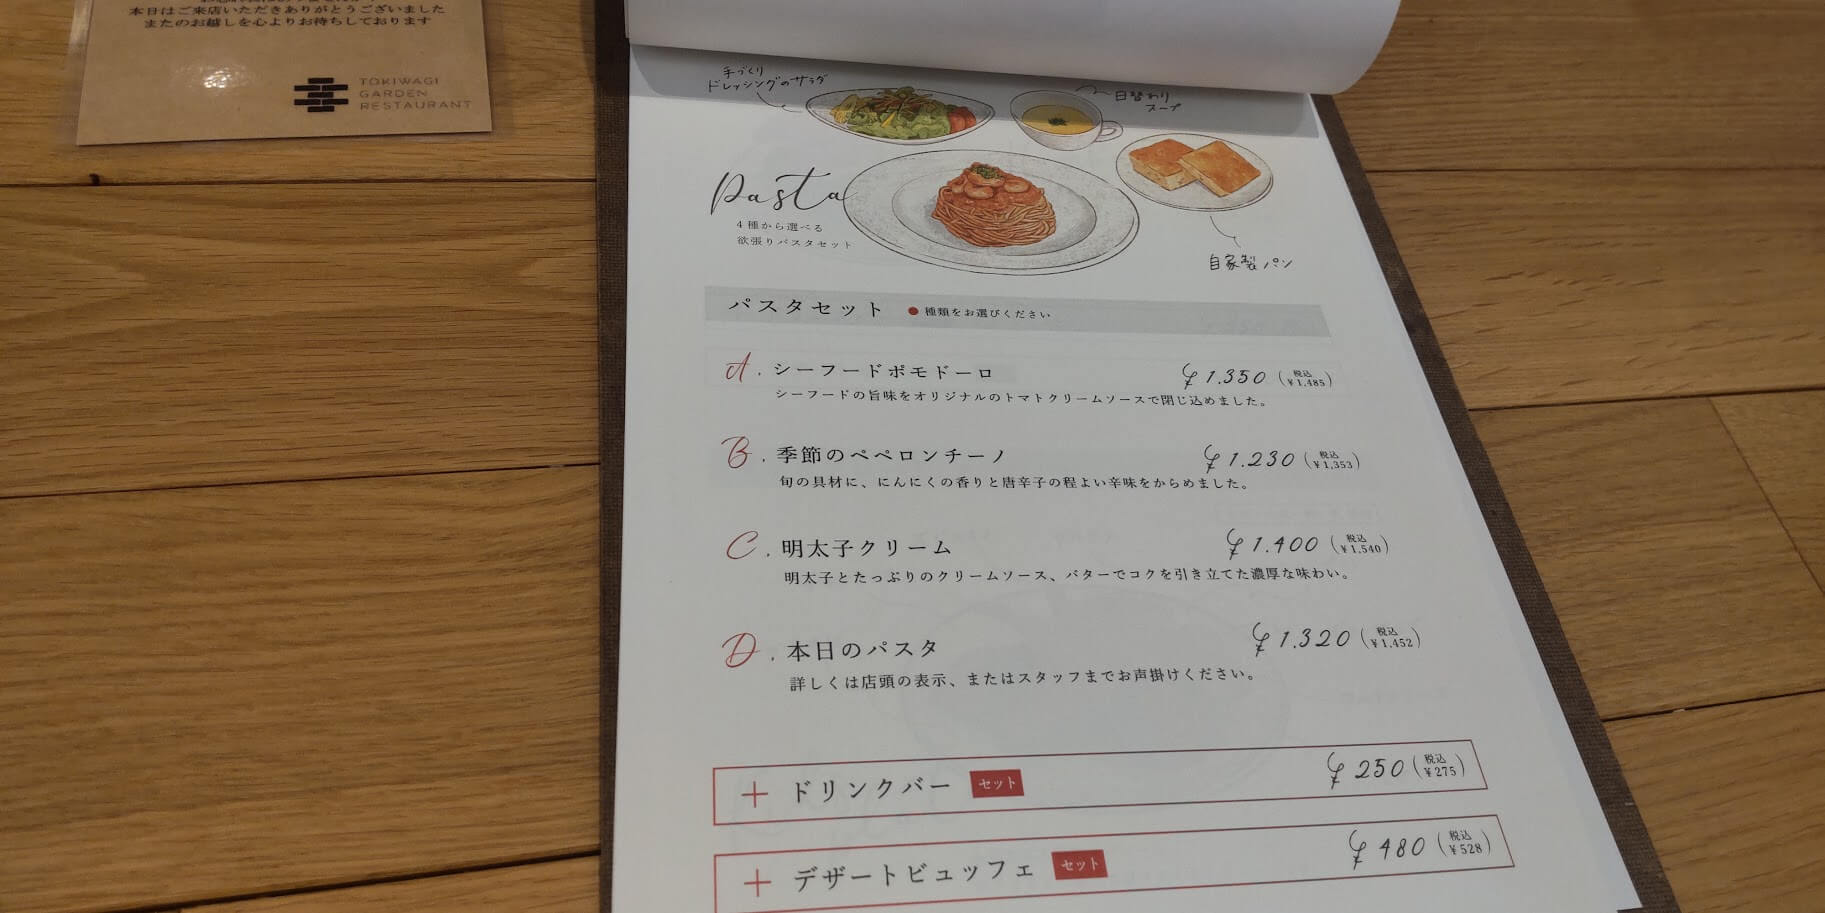 本日はご来店いただきありがとうございました
またのお越しを心よりお待ちしております
TOKIWAGI
GARDEN
RESTAURANT
手づくり
ドレッシングのサラダ
日替わり
スープ
Pasta
4種から選べる
欲張りパスタセット
自家製パン
パスタセット ●種類をお選びください
A. シーフードポモドーロ ¥1.350 (税込 ¥1,485)
シーフードの旨味をオリジナルのトマトクリームソースで閉じ込めました。
B. 季節のペペロンチーノ ¥1.230 (税込 ¥1,353)
旬の具材に、にんにくの香りと唐辛子の程よい辛味をからめました。
C. 明太子クリーム ¥1.400 (税込 ¥1,540)
明太子とたっぷりのクリームソース、バターでコクを引き立てた濃厚な味わい。
D. 本日のパスタ ¥1.320 (税込 ¥1,452)
詳しくは店頭の表示、またはスタッフまでお声掛けください。
+ ドリンクバー セット ¥250 (税込 ¥275)
+ デザートビュッフェ セット ¥480 (税込 ¥528)